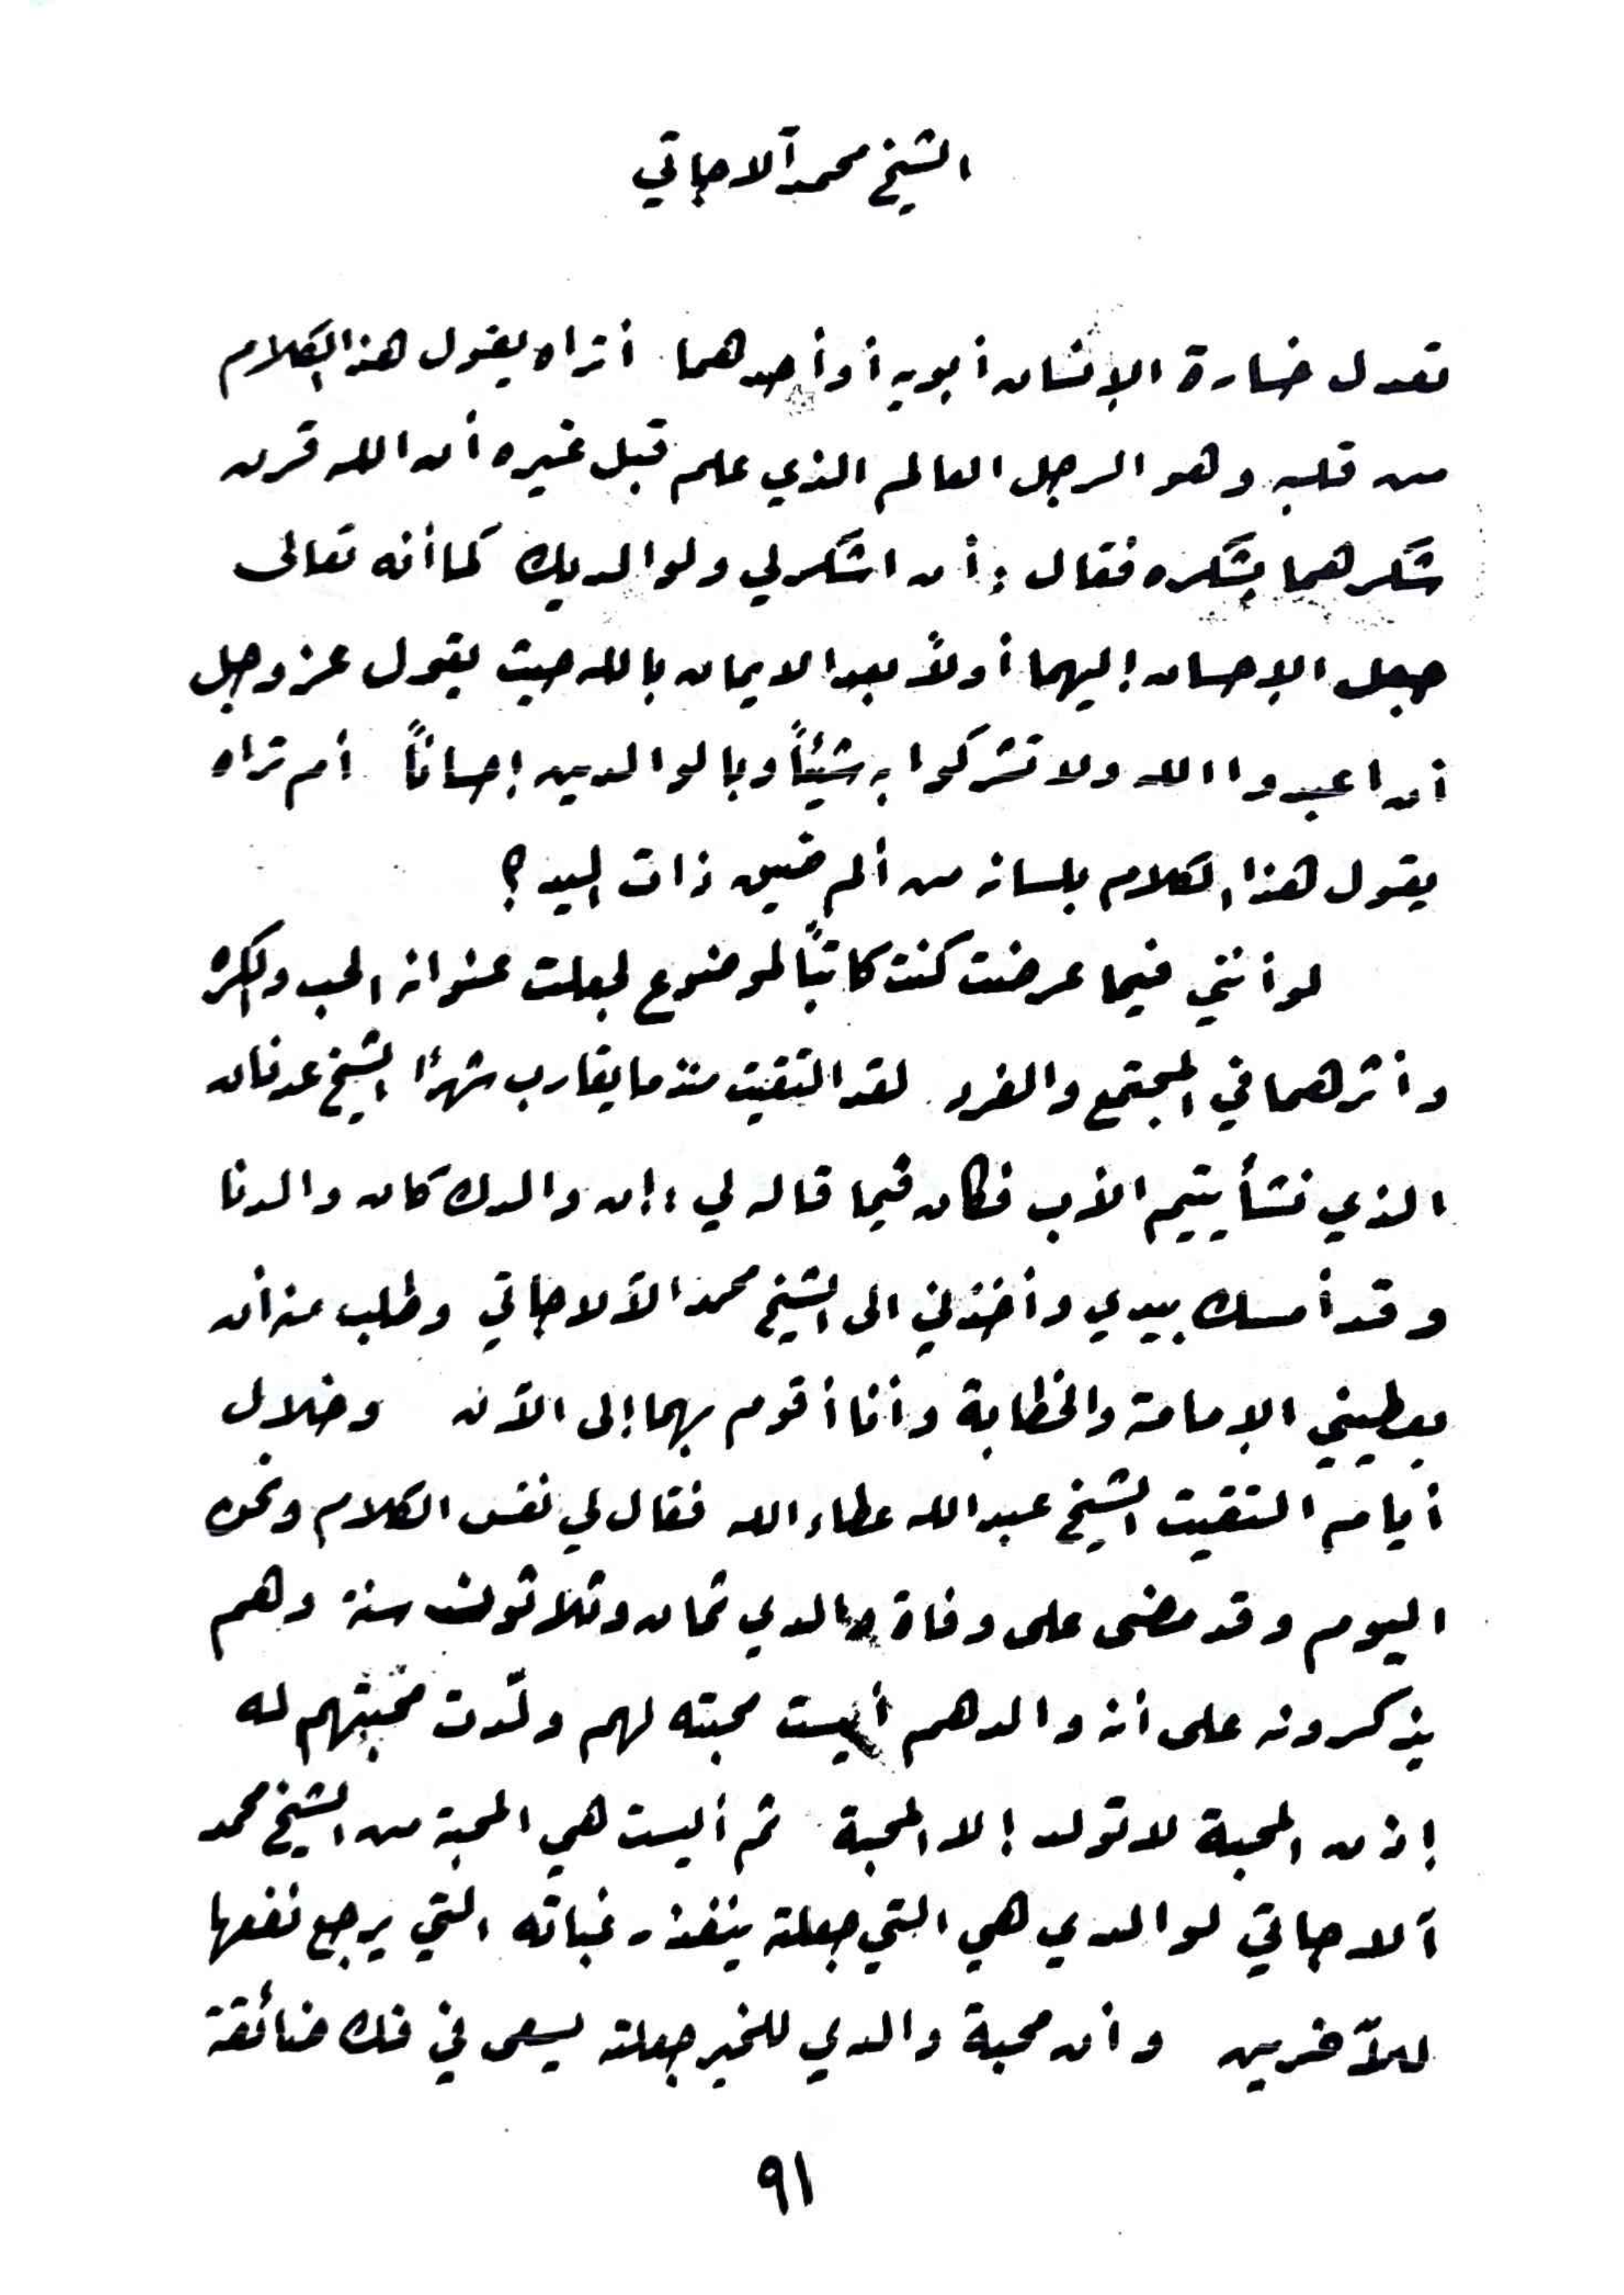 الشيخ محمد آلاجاتي
تعدل خسارة الإنسان أبويه أو أحدهما . أتراه يقول هذا الكلام
من قلبه وهو الرجل العالم الذي علم قبل غيره أن الله قرن
شكرهما بشكره فقال : أن اشكر لي ولوالديك كما أنه تعالى
جعل الإحسان إليهما أولاً بعد الايمان بالله حيث يقول عز وجل
أن اعبدوا الله ولا تشركوا به شيئاً وبالوالدين إحساناً أم تراه
يقول هذا الكلام بلسانه من ألم ضيق ذات اليد ؟
لو أنني فيما عرضت كنت كاتباً لموضوع لجعلت عنوانه الحب والكره
وأثرهما في المجتمع والفرد . لقد التقيت منذ ما يقارب شهراً الشيخ عدنان
الذي نشأ يتيم الأب فكان فيما قاله لي : إن والدك كان والدنا
وقد أمسك بيدي وأخذني الى الشيخ محمد الآلاجاتي وطلب منه أن
يعطيني الإمامة والخطابة وأنا أقوم بهما إلى الآن وخلال
أيام التقيت الشيخ عبد الله عطاء الله فقال لي نفس الكلام ونحن
اليوم وقد مضى على وفاة والدي ثمان وثلاثون سنة وهم
يذكرونه على أنه والدهم أليست محبته لهم ولّدت محبتهم له
إذن المحبة لا تولد إلا المحبة ثم أليست هي المحبة من الشيخ محمد
آلاجاتي لوالدي هي التي جعلته ينفذ رغباته التي يرجع نفعها
للآخرين وأن محبة والدي للخير جعلته يسعى في فك ضائقة
٩١